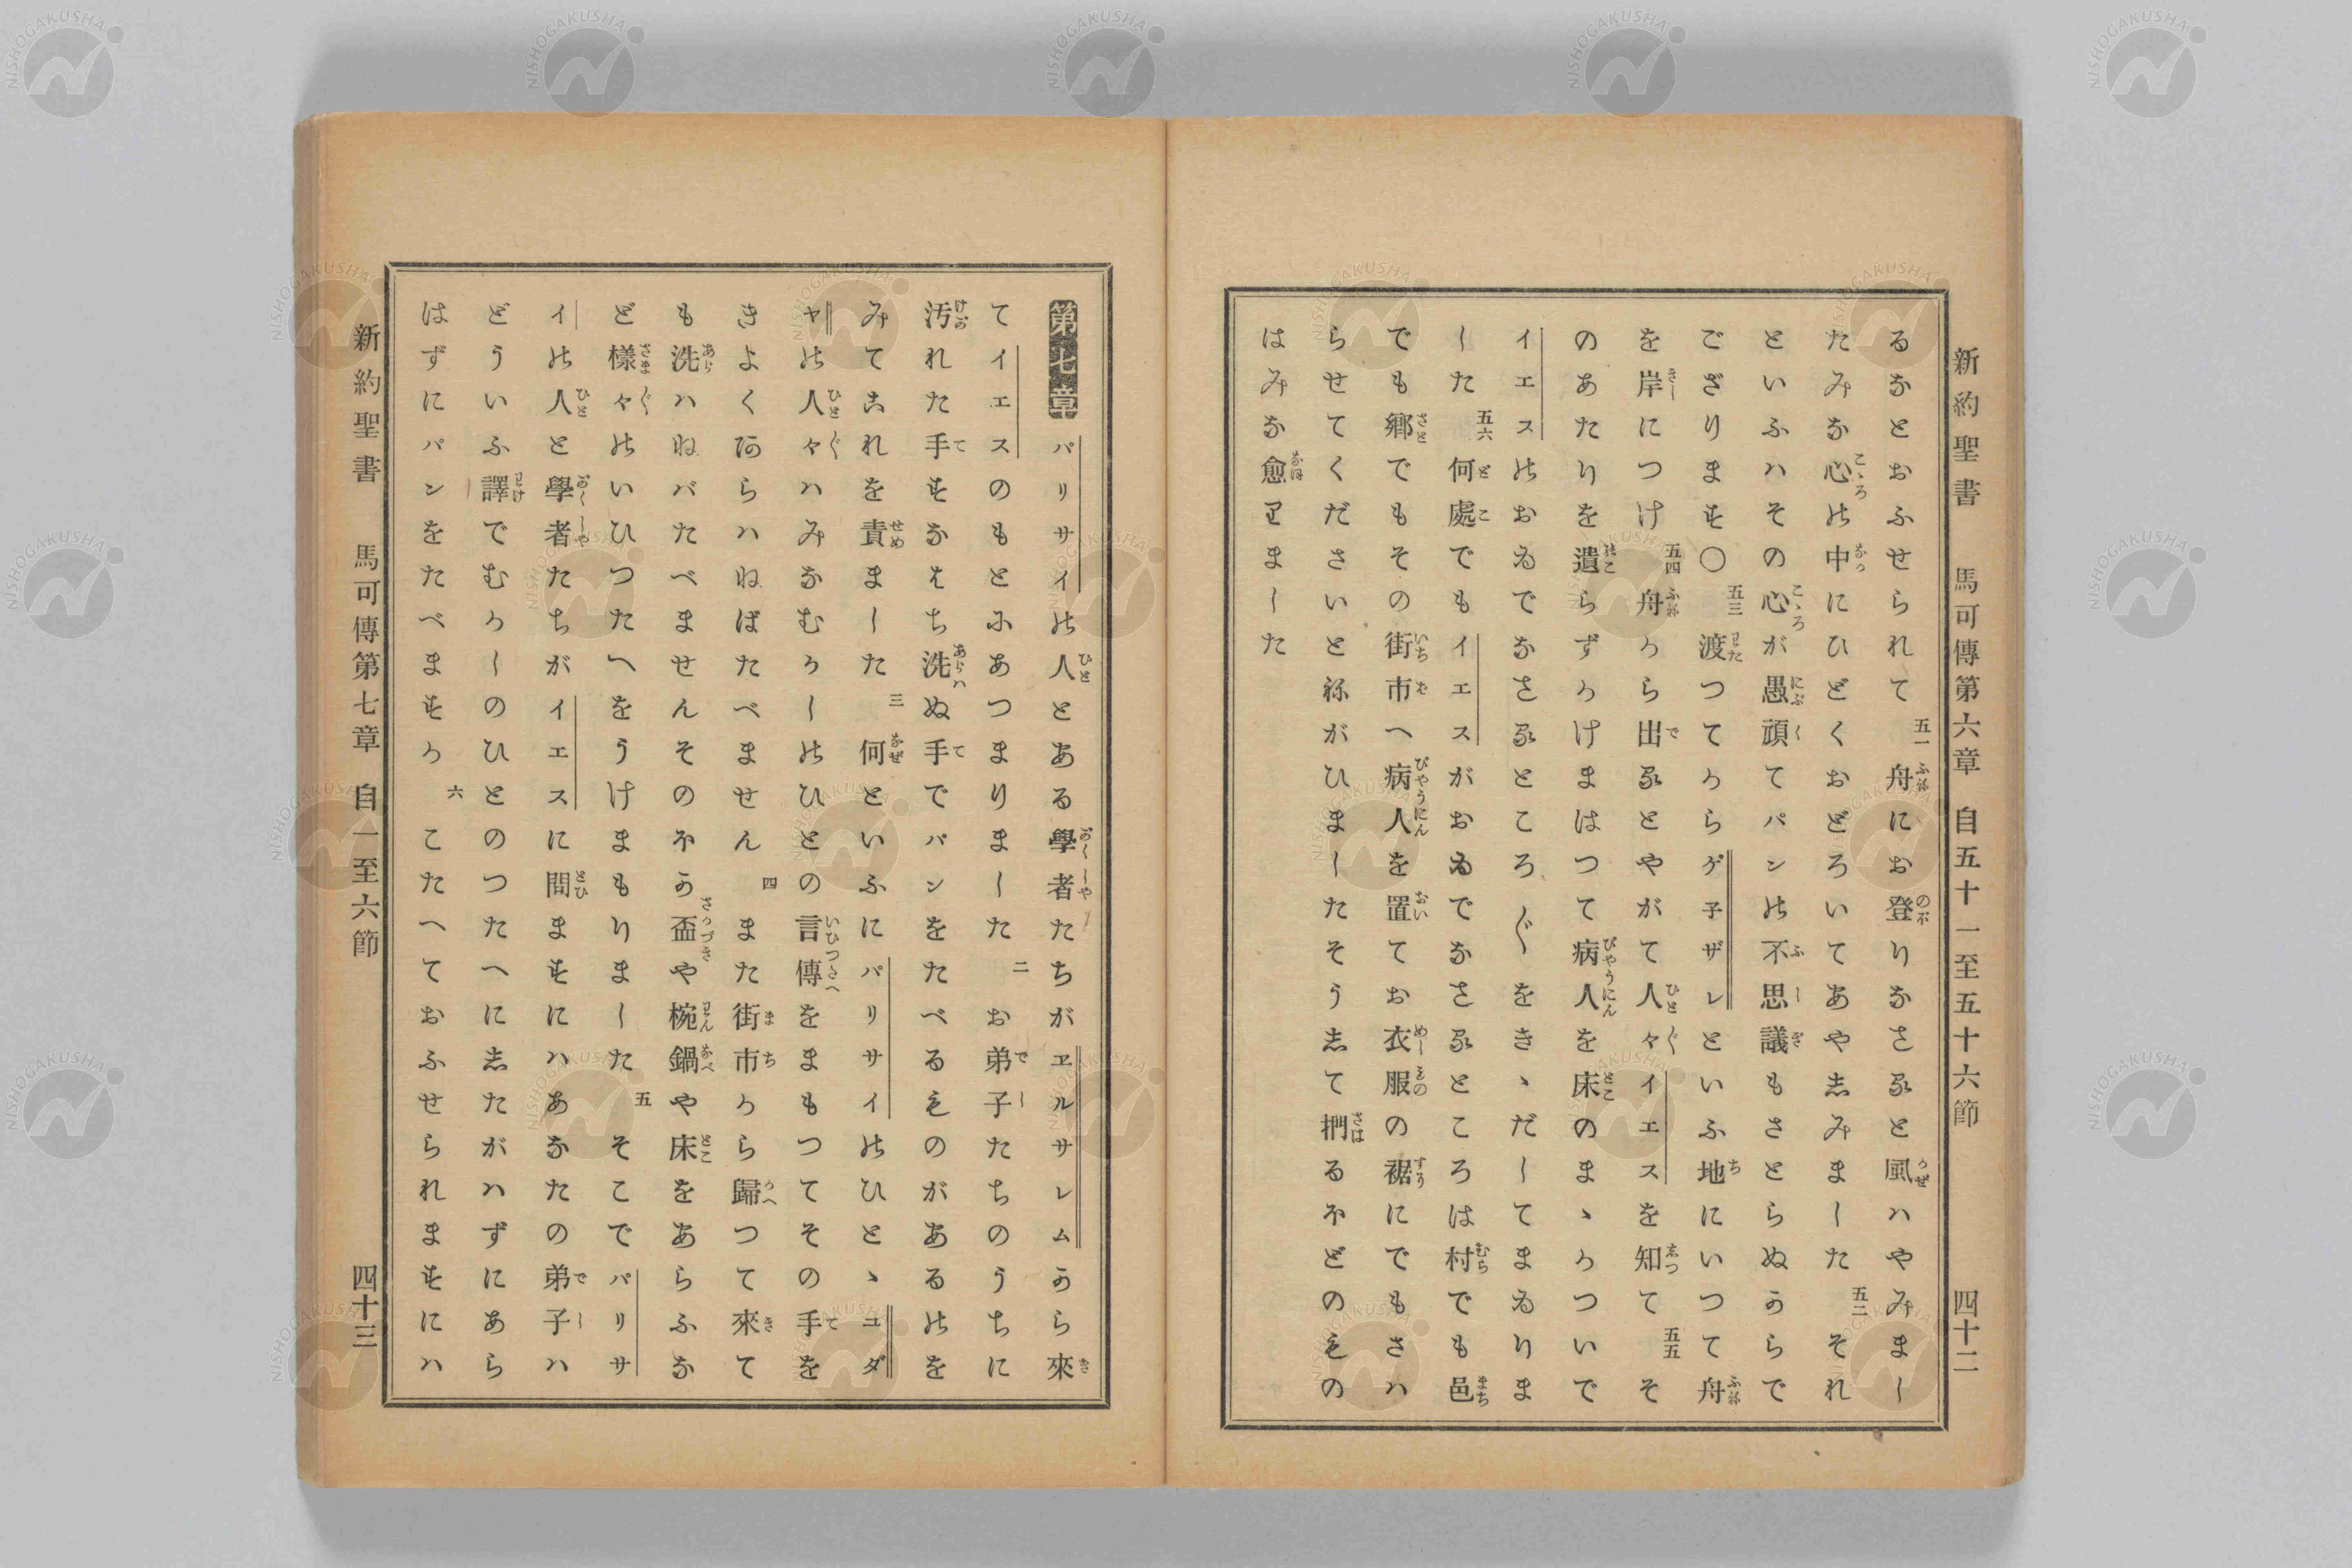 新約聖書　馬可傳第六章　自五十一至五十六節　四十二
るなとおふせられて　五一　舟にお登りなさると風ハやみまし
たみな心の中にひどくおどろいてあやしみました　五二　それ
といふハその心が愚頑てパンの不思議もさとらぬからで
ござります〇　五三　渡つてからゲ子ザレといふ地にいつて舟
を岸につけ　五四　舟から出るとやがて人々イエスを知て　五五　そ
のあたりを遺らずかけまはつて病人を床のまゝかついで
イエスのおゐでなさるところ〱をきゝだしてまゐりま
した　五六　何處でもイエスがおゐでなさるところは村でも邑
でも郷でもその街市へ病人を置てお衣服の裾にでもさハ
らせてくださいとねがひましたそうして捫るほどのもの
はみな愈りました
第七章　パリサイの人とある學者たちがヱルサレムから來
てイエスのもとにあつまりました　二　お弟子たちのうちに
汚れた手すなはち洗ぬ手でパンをたべるものがあるのを
みてこれを責ました　三　何といふにパリサイのひとゝユダ
ヤの人々ハみなむかしのひとの言傳をまもつてその手を
きよくあらハねばたべません　四　また街市から歸つて來て
も洗ハねバたべませんそのほか盃や椀鍋や床をあらふな
ど樣々のいひつたへをうけまもりました　五　そこでパリサ
イの人と學者たちがイエスに問ますにハあなたの弟子ハ
どういふ譯でむかしのひとのつたへにしたがハずにあら
はずにパンをたべますか　六　こたへておふせられますにハ
新約聖書　馬可傳第七章　自一至六節　四十三